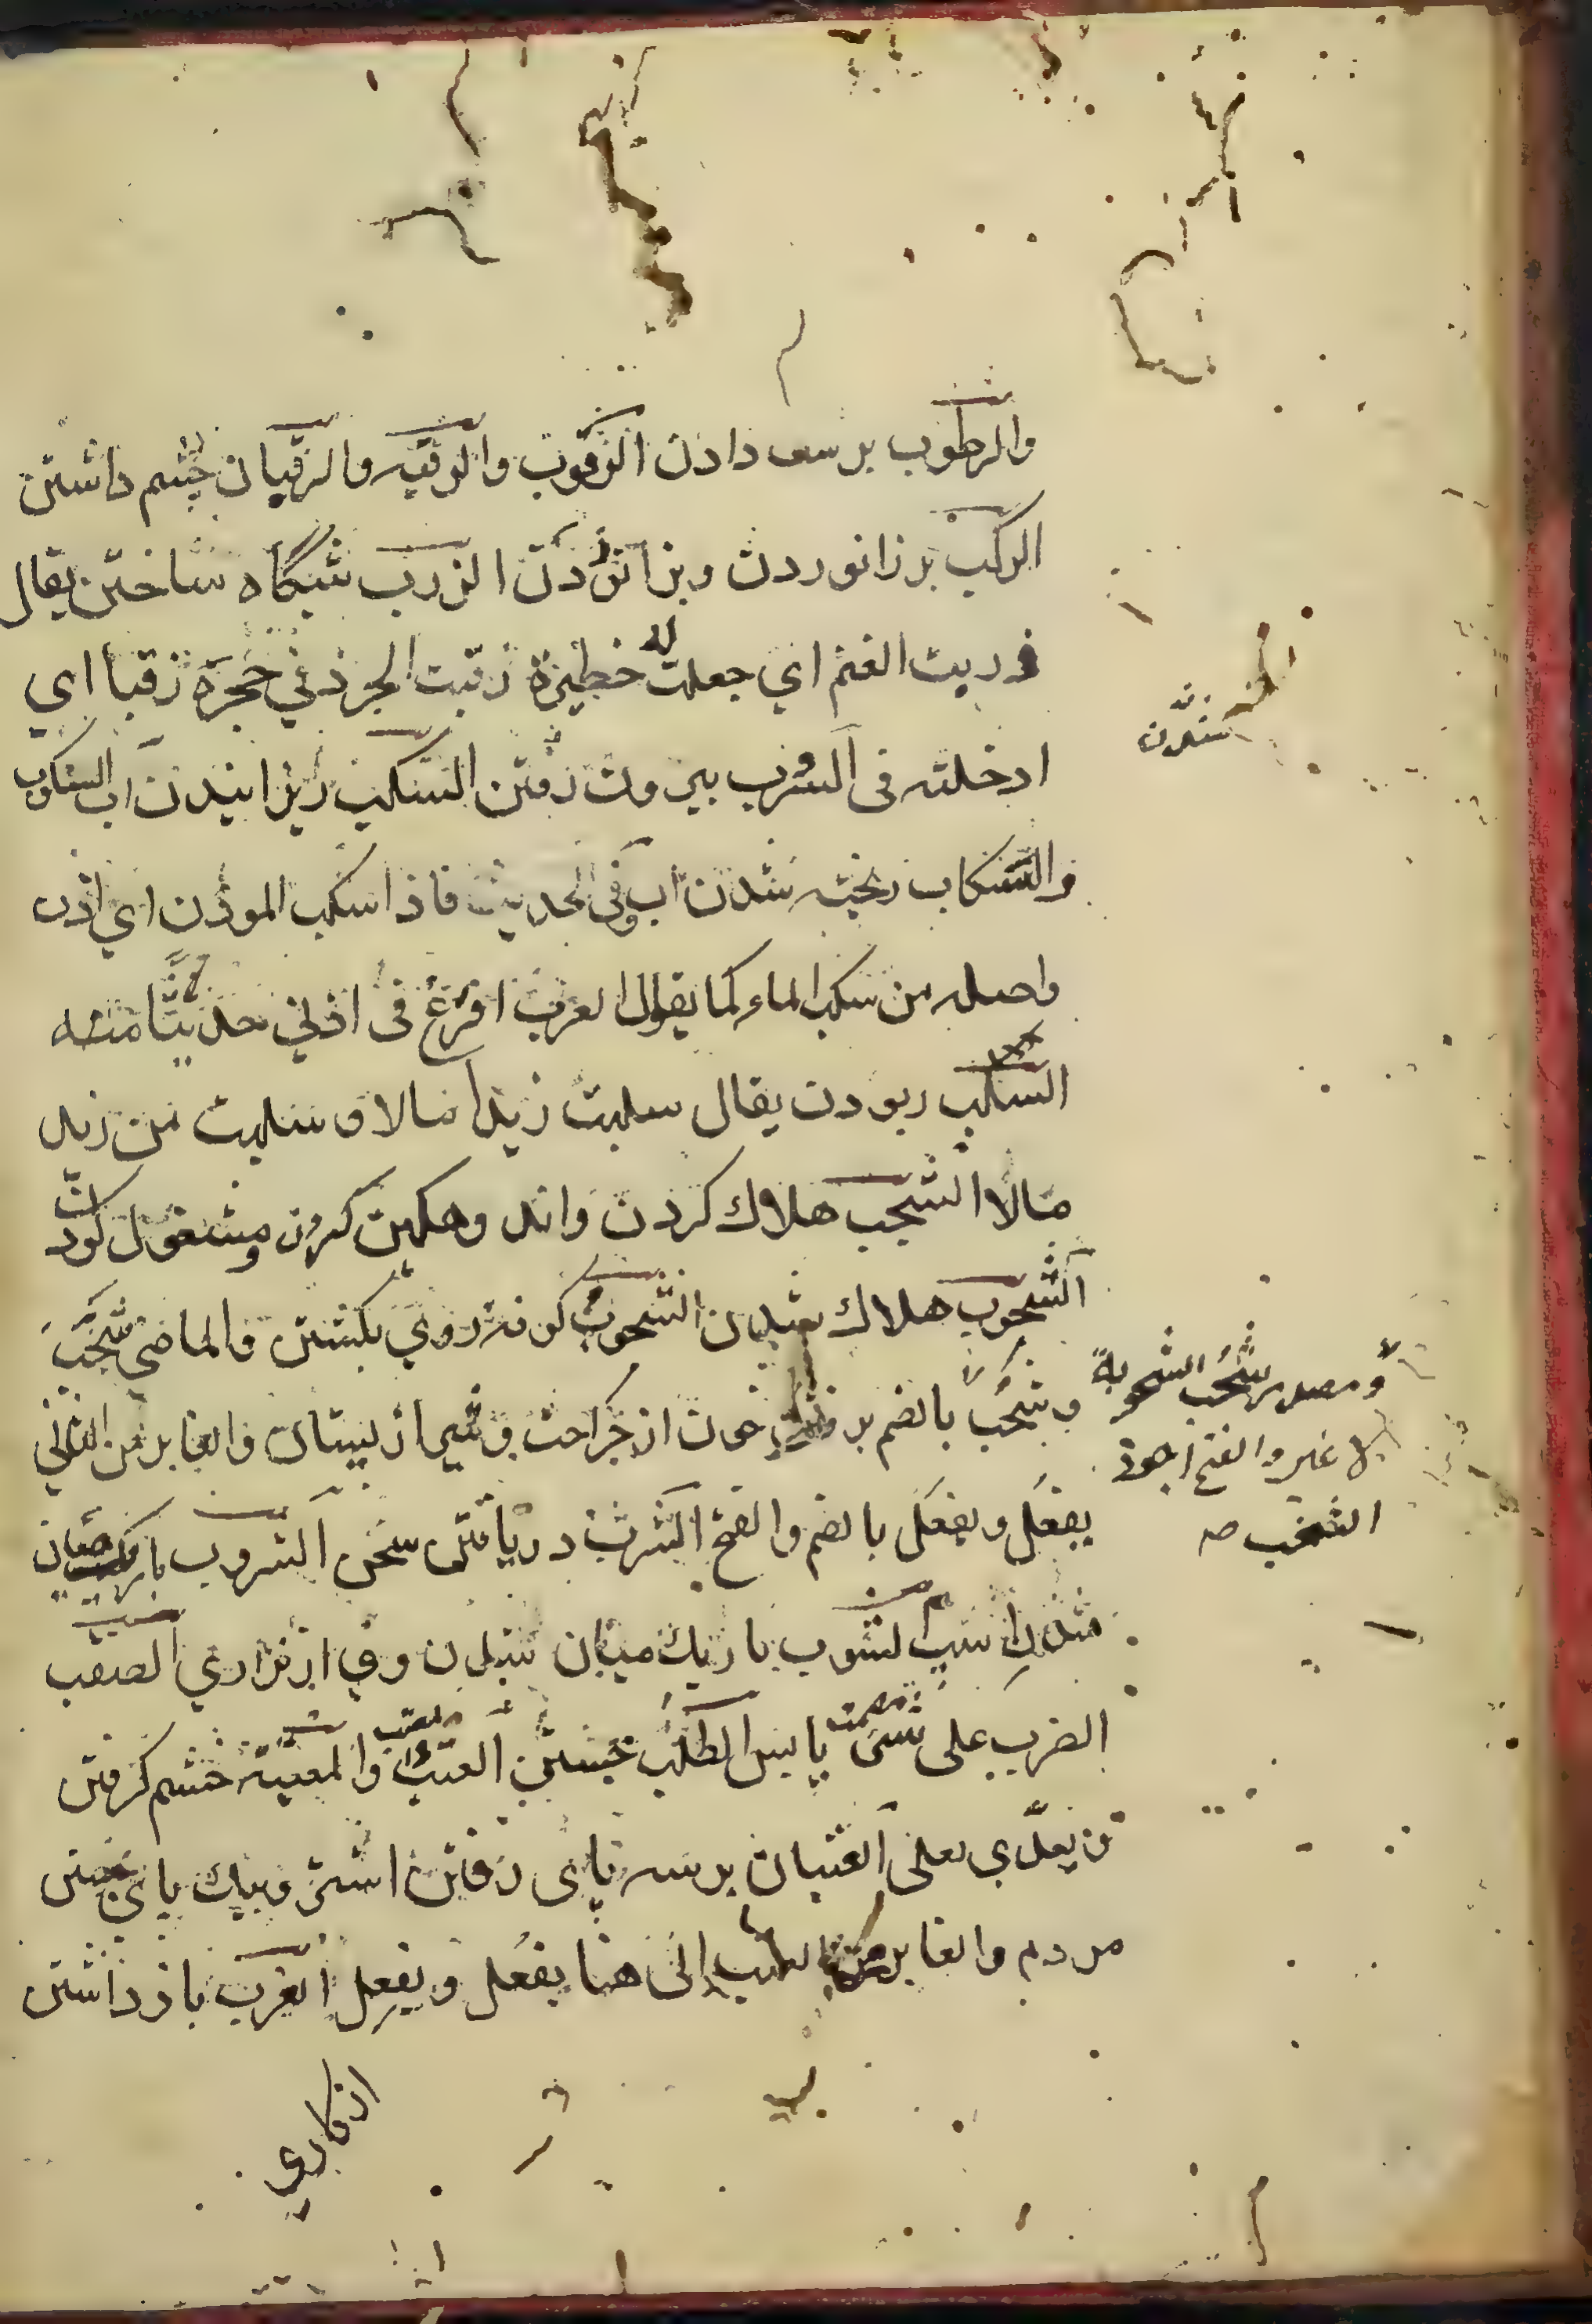 والرطوب برست دادن الرقوب والرقبة والرقبان چشم داشتن
الركب بر زانو زدن وبزانو زدن الزرب شبگاه ساختن يقال
زربت الغنم اي جعلت له حظيرة زقبت الجرذ في جحره زقبا اي
ادخلته فى السرب بيرون رفتن السكب ريزانيدن آب السكوب
والتسكاب ريخته شدن آب وفى الحديث فاذا سكب الموذن اي اذن
واصله من سكب الماء كما يقول العرب افرغ فى اذني حديثا منه
السلب ربودن يقال سلبت زيدا مالا و سلبت من زيد
مالا الشجب هلاك كردن واند وهكين كردن ومشغول كردن
الشجوب هلاك شدن الشحوب كونه روي بكشتن والماضي شحب
وشحب بالضم بر خون از جراحت وشير از پستان والغابر من الثاني
يفعل ويفعل بالضم والفتح الشرب دريافتن سخن الشروب باريك ميان
شدن اسب الشسوب باريك ميان شدن وي از نزاري الصقب
الضرب على شئ مصمت يابس الطلب جستن العتب والمعتبة خشم گرفتن
يعدي بعلى العتبان برسه پاى رفتن اشتر وبيك پاى جستن
مردم والغابر من الى هنا يفعل ويفعل العزب باز داشتن
ومصدر شحب الشحوبة
لا غير والفتح اجود
الشخب صه
از كاري